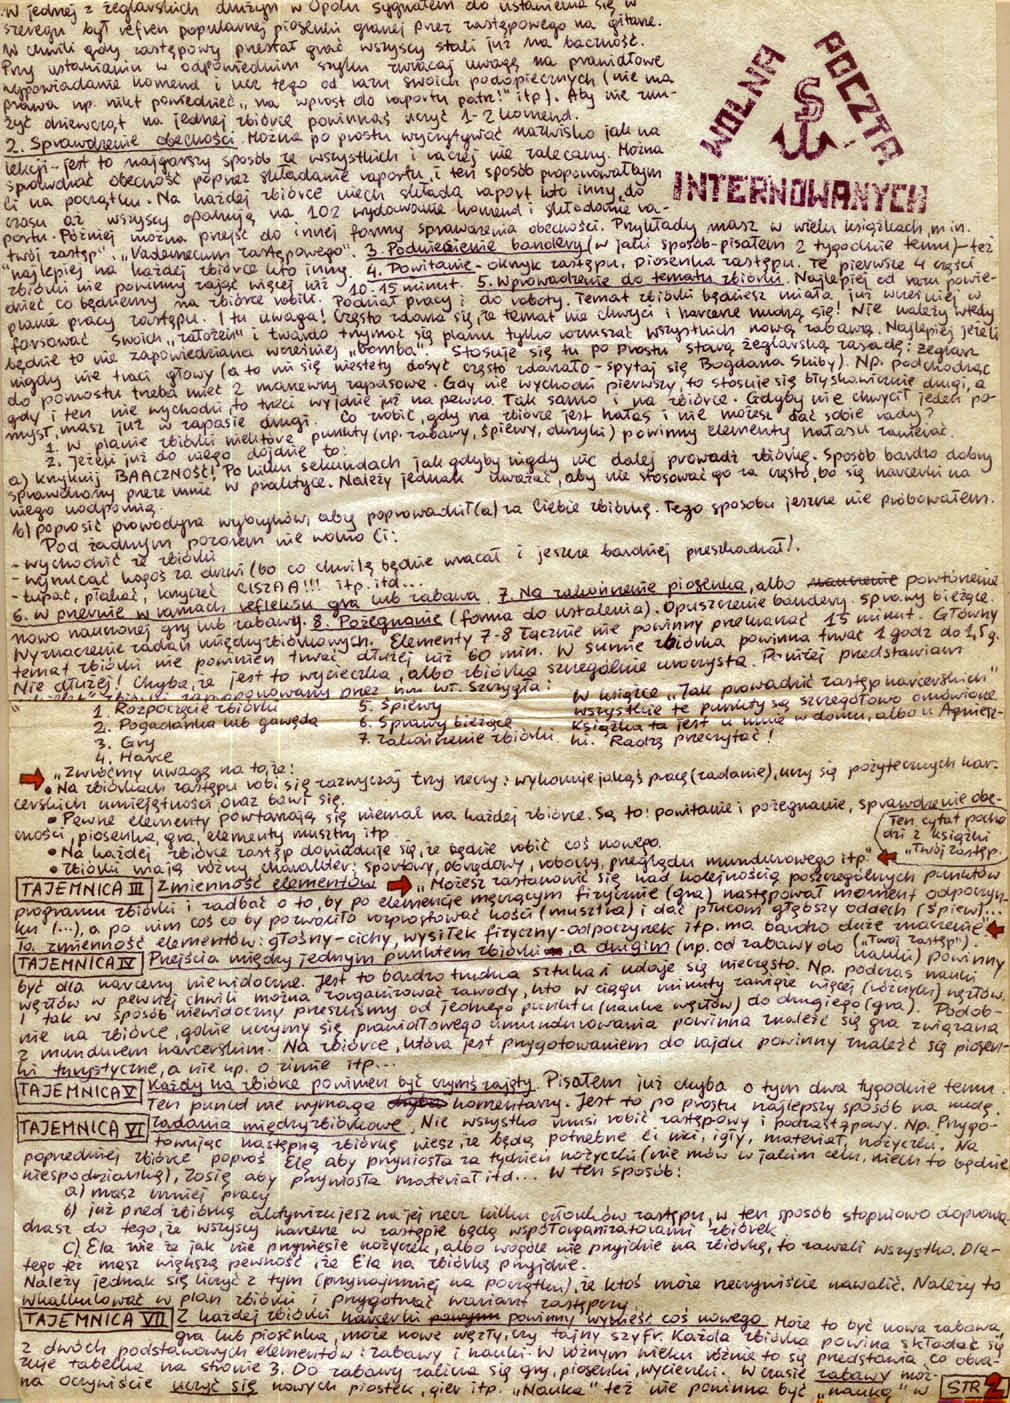 W jednej z żeglarskich drużyn w Opolu sygnałem do ustawienia się w
szeregu był refren popularnej piosenki granej przez zastępowego na gitarze.
W chwili gdy zastępowy przestał grać wszyscy stali już na baczność.
Przy ustawianiu w odpowiednim szyku zwracaj uwagę na prawidłowe
wypowiadanie komend i ucz tego od razu swoich podopiecznych (nie ma
prawa np. nikt powiedzieć "na wprost do raportu patrz!" itp). Aby nie znu-
żyć dziewcząt na jednej zbiórce powinnaś uczyć 1-2 komend.
2. Sprawdzenie obecności. Można po prostu wyczytywać nazwisko jak na
lekcji - jest to najgorszy sposób ze wszystkich i raczej nie zalecany. Można
sprawdzać obecność poprzez składanie raportu i ten sposób proponowałbym
Ci na początku. Na każdej zbiórce niech składa raport kto inny, do
czasu aż wszyscy opanują na 102 wydawanie komend i składanie ra-
portu. Później można przejść do innej formy sprawdzenia obecności. Przykłady masz w wielu książkach, m.in.
"Twój zastęp", "Vademecum zastępowego". 3. Podniesienie bandery (w jaki sposób - pisałem 2 tygodnie temu) - też
najlepiej na każdej zbiórce kto inny. 4. Powitanie - okrzyk zastępu, piosenka zastępu. Te pierwsze 4 części
zbiórki nie powinny zająć więcej niż 10-15 minut. 5. Wprowadzenie do tematu zbiórki. Najlepiej od razu powie-
dzieć co będziemy na zbiórce robili. Podział pracy i do roboty. Temat zbiórki będziesz miała już wcześniej w
planie pracy zastępu. I tu uwaga! Często zdarza się, że temat nie chwyci i harcerze nudzą się! Nie należy wtedy
forsować swoich "założeń" i twardo trzymać się planu tylko rozruszać wszystkich nową zabawą. Najlepiej jeżeli
będzie to nie zapowiedziana wcześniej "bomba". Stosuje się tu po prostu starą żeglarską zasadę: żeglarz
nigdy nie traci głowy (a to mi się niestety dosyć często zdarzało - spytaj się Bogdana Śliby). Np. podchodząc
do pomostu trzeba mieć 2 manewry zapasowe. Gdy nie wychodzi pierwszy, to stosuje się błyskawicznie drugi, a
gdy i ten nie wychodzi, to trzeci wyjdzie już na pewno. Tak samo i na zbiórce. Gdyby nie chwycił jeden po-
mysł, masz już w zapasie drugi. Co robić, gdy na zbiórce jest hałas i nie możesz dać sobie rady?
1. W planie zbiórki niektóre punkty (np. zabawy, śpiewy, okrzyki) powinny elementy hałasu zawierać.
2. Jeżeli już do niego dojdzie to:
a) krzyknij BAACZNOŚĆ! Po kilku sekundach jak gdyby nigdy nic dalej prowadź zbiórkę. Sposób bardzo dobry
sprawdzony przeze mnie w praktyce. Należy jednak uważać, aby nie stosować go za często, bo się harcerki na
niego uodpornią.
b) poprosić prowodyra wybryków, aby poprowadził(a) za Ciebie zbiórkę. Tego sposobu jeszcze nie próbowałem.
Pod żadnym pozorem nie wolno Ci:
- wychodzić ze zbiórki
- wyrzucać kogoś za drzwi (bo co chwilę będzie wracał i jeszcze bardziej przeszkadzał).
- tupać, płakać, krzyczeć CISZAA!!! itp. itd...
6. W przerwie w ramach refleksu gra lub zabawa 7. Na zakończenie piosenka, albo powtórzenie
nowo nauczonej gry lub zabawy. 8. Pożegnanie (forma do ustalenia). Opuszczenie bandery. Sprawy bieżące.
Wyznaczenie zadań międzyzbiórkowych. Elementy 7-8 łącznie nie powinny przekraczać 15 minut. Główny
temat zbiórki nie powinien trwać dłużej niż 60 min. W sumie zbiórka powinna trwać 1 godz do 1,5 g.
Nie dłużej! Chyba, że jest to wycieczka, albo zbiórka szczególnie uroczysta. Poniżej przedstawiam
zbiórki zaproponowany przez hm Wł. Szczygła:
1. Rozpoczęcie zbiórki
2. Pogadanka lub gawęda
3. Gry
4. Harce
5. Śpiewy
6. Sprawy bieżące
7. Zakończenie zbiórki
W książce "Jak prowadzić zastęp harcerskich"
wszystkie te punkty są szczegółowo omówione.
Książka ta jest u mnie w domu, albo u Agniesz-
ki. Radzę przeczytać!
"Zwróćmy uwagę na to, że:
• Na zbiórkach zastępu robi się zazwyczaj trzy rzeczy: wykonuje jakąś pracę (zadanie), uczy się pożytecznych har-
cerskich umiejętności oraz bawi się.
• Pewne elementy powtarzają się niemal na każdej zbiórce. Są to: powitanie i pożegnanie, sprawdzenie obe-
cności, piosenka, gra, elementy musztry itp
• Na każdej zbiórce zastęp dowiaduje się, że będzie robić coś nowego.
• Zbiórki mają różny charakter: sportowy, obrzędowy, roboczy, przeglądu mundurowego itp."
Ten cytat pocho
dzi z książki
"Twój zastęp"
TAJEMNICA III Zmienność elementów "Możesz zastanowić się nad kolejnością poszczególnych punktów
programu zbiórki i zadbać o to, by po elemencie męczącym fizycznie (gra) następował moment odpoczyn-
ku (...), a po nim coś co by pozwoliło rozprostować kości (musztra) i dać płucom głębszy oddech (śpiew)...
To zmienność elementów: głośny-cichy, wysiłek fizyczny-odpoczynek itp. ma bardzo duże znaczenie" ("Twój zastęp").
TAJEMNICA IV Przejścia między jednym punktem zbiórki, a drugim (np. od zabawy do nauki) powinny
być dla harcerzy niewidoczne. Jest to bardzo trudna sztuka i udaje się nieczęsto. Np. podczas nauki
węzłów w pewnej chwili można zorganizować zawody, kto w ciągu minuty zawiąże więcej (różnych) węzłów.
I tak w sposób niewidoczny przeszliśmy od jednego punktu (nauka węzłów) do drugiego (gra). Podob-
nie na zbiórce, gdzie uczymy się prawidłowego umundurowania powinna znaleźć się gra związana
z mundurem harcerskim. Na zbiórce, która jest przygotowaniem do rajdu powinny znaleźć się piosen-
ki turystyczne, a nie np. o zimie itp...
TAJEMNICA V Każdy na zbiórce powinien być czymś zajęty. Pisałem już chyba o tym dwa tygodnie temu.
Ten punkt nie wymaga komentarzy. Jest to po prostu najlepszy sposób na nudę.
TAJEMNICA VI Zadania międzyzbiórkowe. Nie wszystko musi robić zastępowy i podzastępowy. Np. Przygo-
towując następną zbiórkę wiesz, że będą potrzebne Ci nici, igły, materiał, nożyczki. Na
poprzedniej zbiórce poproś Elę aby przyniosła za tydzień nożyczki (nie mów w jakim celu, niech to będzie
niespodzianką), Zosię aby przyniosła materiał itd... W ten sposób:
a) masz mniej pracy
b) już przed zbiórką aktywizujesz na jej rzecz kilku członków zastępu, w ten sposób stopniowo doprowa-
dzasz do tego, że wszyscy harcerze w zastępie będą współorganizatorami zbiórek.
c) Ela wie że jak nie przyniesie nożyczek, albo wogóle nie przyjdzie na zbiórkę, to zawali wszystko. Dla-
tego też masz większą pewność, że Ela na zbiórkę przyjdzie.
Należy jednak się liczyć z tym (przynajmniej na początku), że ktoś może rzeczywiście nawalić. Należy to
wkalkulować w plan zbiórki i przygotować wariant zastępczy.
TAJEMNICA VII Z każdej zbiórki harcerki powinny wynieść coś nowego. Może to być nowa zabawa,
gra lub piosenka, może nowe węzły, czy tajny szyfr. Każda zbiórka powinna składać się
z dwóch podstawowych elementów: zabawy i nauki. W różnym wieku różnie to się przedstawia, co obra-
zuje tabelka na stronie 3. Do zabawy zalicza się gry, piosenki, wycieczki. W czasie zabawy moż-
na oczywiście uczyć się nowych piosenek, gier itp. "Nauka" też nie powinna być "nauką" w
STR 2
WOLNA POCZTA
INTERNOWANYCH